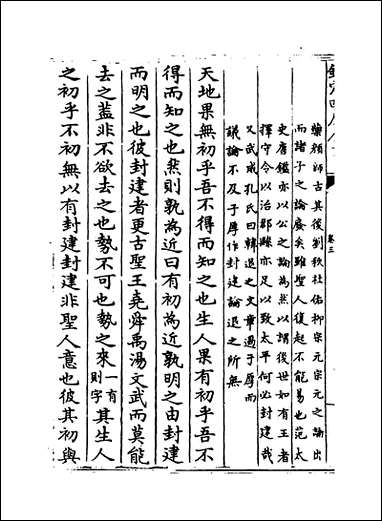 欽定四庫全書
卷三
藥顔師古其後劉秩杜佑柳宗元宗元之論出
而諸子之論廢矣雖聖人復起不能易也范太
史唐鑑亦以公之論為然以謂後世如有王者
擇守令以治郡縣亦足以致太平何必封建哉
又武咸孔氏曰韓退之文章過子厚而
議論不及子厚作封建論退之所無
天地果無初乎吾不得而知之也生人果有初乎吾不
得而知之也然則孰為近曰有初為近孰明之由封建
而明之也彼封建者更古聖王堯舜禹湯文武而莫能
去之蓋非不欲去之也勢不可也勢之來一有則字其生人
之初乎不初無以有封建封建非聖人意也彼其初與